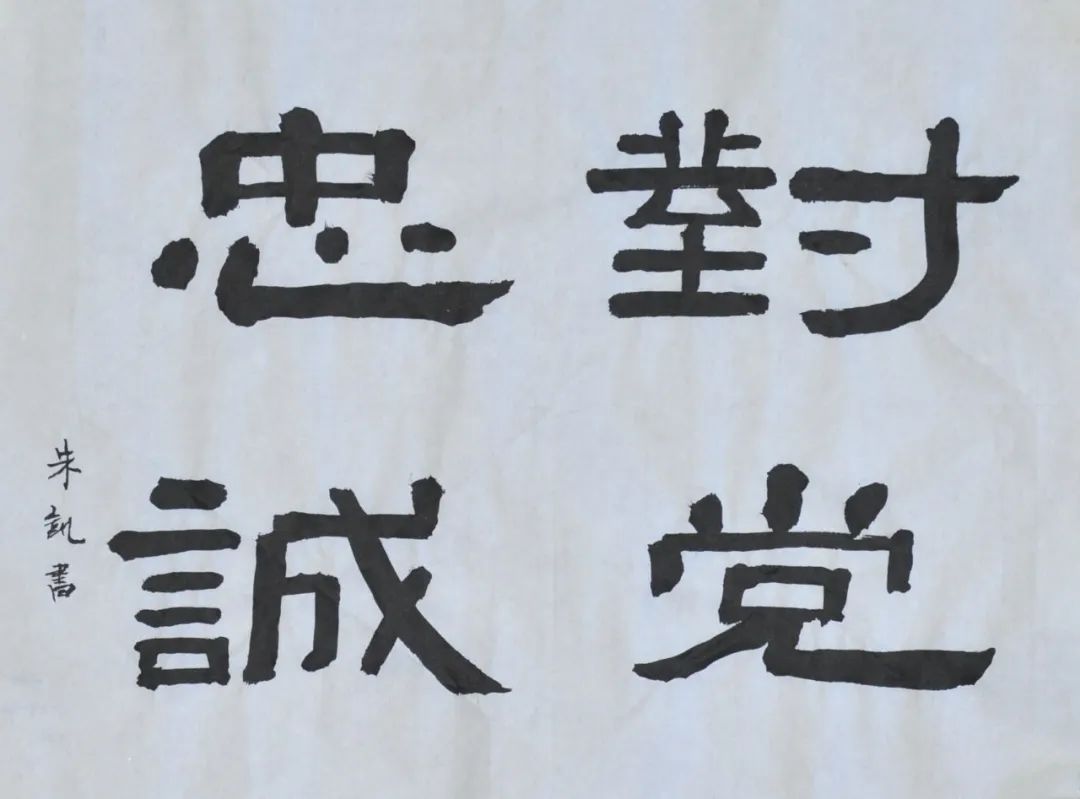 對党
忠誠
朱凱書